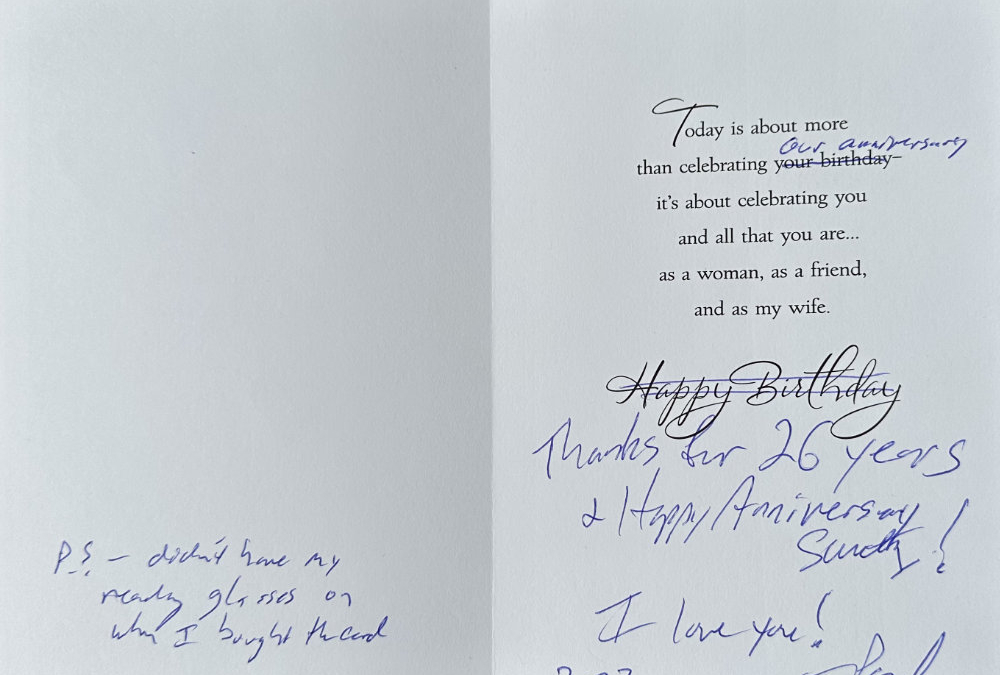 P.S. – didn't have my
reading glasses on
when I bought the card
Today is about more
our anniversary
than celebrating your birthday–
it's about celebrating you
and all that you are...
as a woman, as a friend,
and as my wife.
Happy Birthday
Thanks for 26 years
& Happy Anniversary
!
I love you!